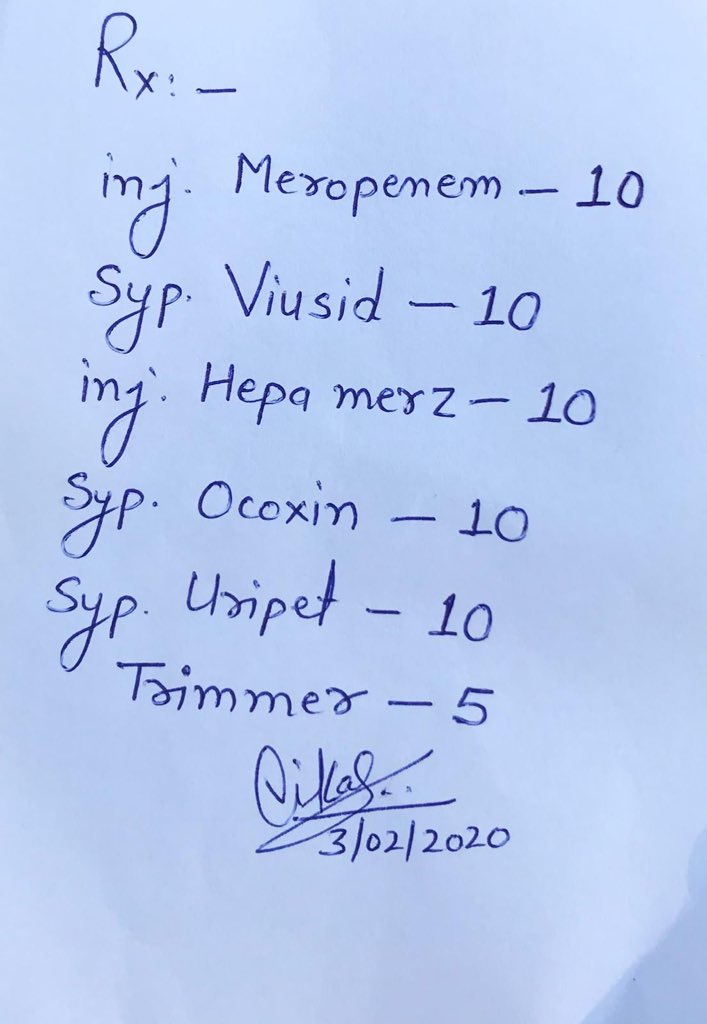 Rx:-
inj. Meropenem - 10
Syp. Viusid - 10
inj. Hepa merz - 10
Syp. Ocoxin - 10
Syp. Uripet - 10
Trimmer - 5
3/02/2020